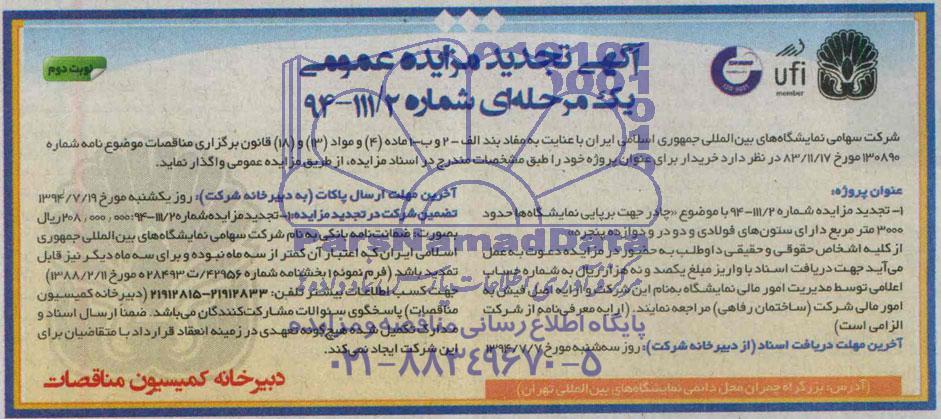 آگهی تجدید مزایده عمومی
یک مرحله‌ای شماره ۹۴-۱۱۱/۲
نوبت دوم
ufi
member
ISO 9001
شرکت سهامی نمایشگاه‌های بین‌المللی جمهوری اسلامی ایران با عنایت به مفاد بند الف-۲ و ب-۱ ماده (۴) و مواد (۱۳) و (۱۸) قانون برگزاری مناقصات موضوع نامه شماره
۱۳۰۸۹۰ مورخ ۸۳/۱۱/۱۷ در نظر دارد خریدار برای عنوان پروژه خود را طبق مشخصات مندرج در اسناد مزایده، از طریق مزایده عمومی واگذار نماید.
عنوان پروژه:
۱- تجدید مزایده شماره ۹۴-۱۱۱/۲ با موضوع «چادر جهت برپایی نمایشگاه‌ها حدود
۳۰۰۰ متر مربع دارای ستون‌های فولادی و دو در و دوازده پنجره»
از کلیه اشخاص حقوقی و حقیقی داوطلب به حضور در مزایده دعوت به عمل
می‌آید جهت دریافت اسناد با واریز مبلغ یکصد و نه هزار ریال به شماره حساب
اعلامی توسط مدیریت امور مالی نمایشگاه به‌نام این شرکت و ارایه اصل فیش به
امور مالی شرکت (ساختمان رفاهی) مراجعه نمایند. (ارایه معرفی‌نامه از شرکت
الزامی است)
آخرین مهلت دریافت اسناد (از دبیرخانه شرکت): روز سه‌شنبه مورخ ۱۳۹۴/۷/۷
آخرین مهلت ارسال پاکات (به دبیرخانه شرکت): روز یکشنبه مورخ ۱۳۹۴/۷/۱۹
تضمین شرکت در تجدید مزایده: ۱- تجدید مزایده شماره ۹۴-۱۱۱/۲: ۲۰۸,۰۰۰,۰۰۰ ریال
بصورت: ضمانت‌نامه بانکی به نام شرکت سهامی نمایشگاه‌های بین‌المللی جمهوری
اسلامی ایران که اعتبار آن کمتر از سه ماه نبوده و برای سه ماه دیگر نیز قابل
تمدید باشد (فرم نمونه ۱ بخشنامه شماره ۴۲۹۵۶/ت ۲۸۴۹۳ ه مورخ ۱۳۸۸/۲/۱۱)
جهت کسب اطلاعات بیشتر تلفن: ۲۱۹۱۲۸۳۳-۲۱۹۱۲۸۱۵ (دبیرخانه کمیسیون
مناقصات) پاسخگوی سوالات مشارکت‌کنندگان می‌باشد. ضمناً ارسال اسناد و
مدارک تکمیل شده هیچ‌گونه تعهدی در زمینه انعقاد قرارداد با متقاضیان برای
این شرکت ایجاد نمی‌کند.
دبیرخانه کمیسیون مناقصات
(آدرس: بزرگراه چمران محل دائمی نمایشگاه‌های بین‌المللی تهران)
ParsNamadData
پایگاه اطلاع رسانی مناقصه و مزایده
۰۲۱-۸۸۳۴۹۶۷۰-۵